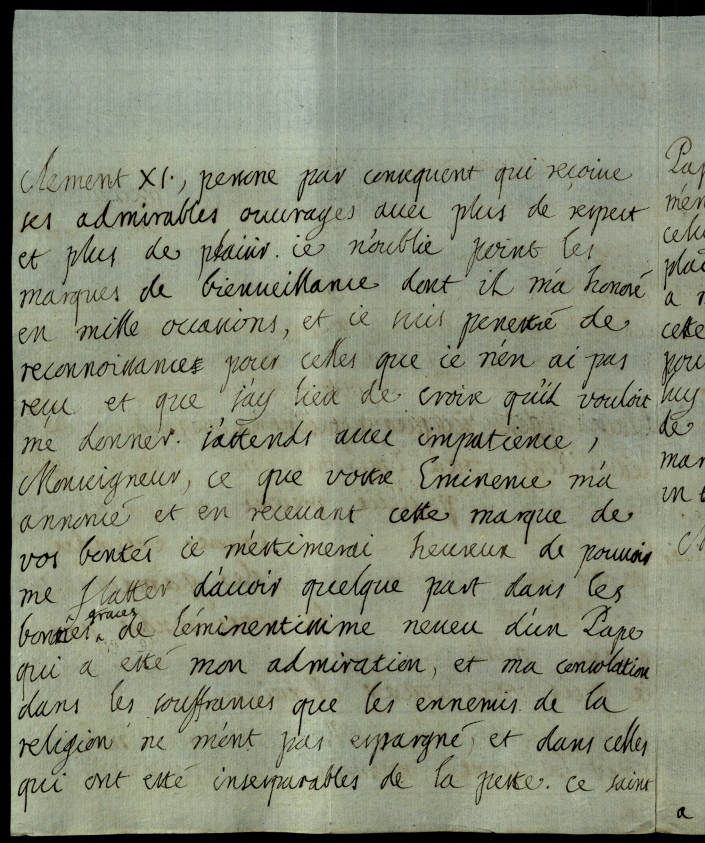 Clement XI., persone par consequent qui reçoiue
ses admirables ouurages auec plus de respect
et plus de plaisir. ie n'oublie point les
marques de bienueillance dont il m'a honoré
en mille occasions, et ie suis penetré de
reconnoissance pour celles que ie n'en ai pas
reçu et que j'ay lieu de croire qu'il vouloit
me donner. j'attends auec impatience,
Monseigneur, ce que vostre Eminence m'a
annoncé et en receuant cette marque de
vos bontés ie m'estimerai heureux de pouuoir
me flatter d'auoir quelque part dans les
bonnes graces de l'éminentissime neueu d'un Pape
qui a esté mon admiration, et ma consolation
dans les souffrances que les ennemis de la
religion ne m'ont pas espargné, et dans celles
qui ont esté inseparables de la peste. ce saint
a